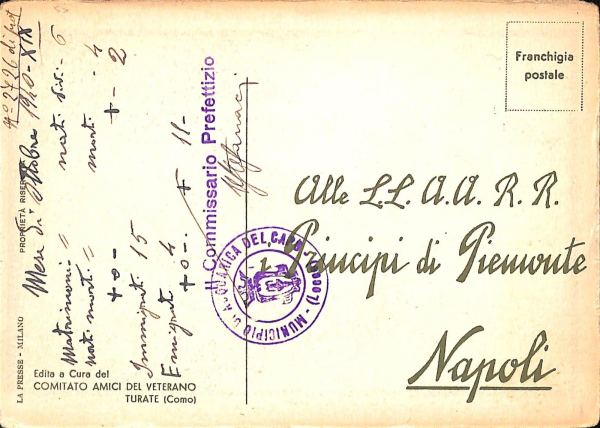 N° 2726 di prot
Mese di Ottobre 1940-XIX
Matrimoni = nati vivi - 6
nati morti = morti - 4
+ 0 - + - 2
Immigrati 15
Emigrati 4
+ 0 - + 11 -
Il Commissario Prefettizio
MUNICIPIO DI ACQUARICA DEL CAPO
PROPRIETÀ RISER
LA PRESSE - MILANO
Edita a Cura del
COMITATO AMICI DEL VETERANO
TURATE (Como)
Franchigia
postale
Alle L.L. A.A. R.R.
Principi di Piemonte
Napoli